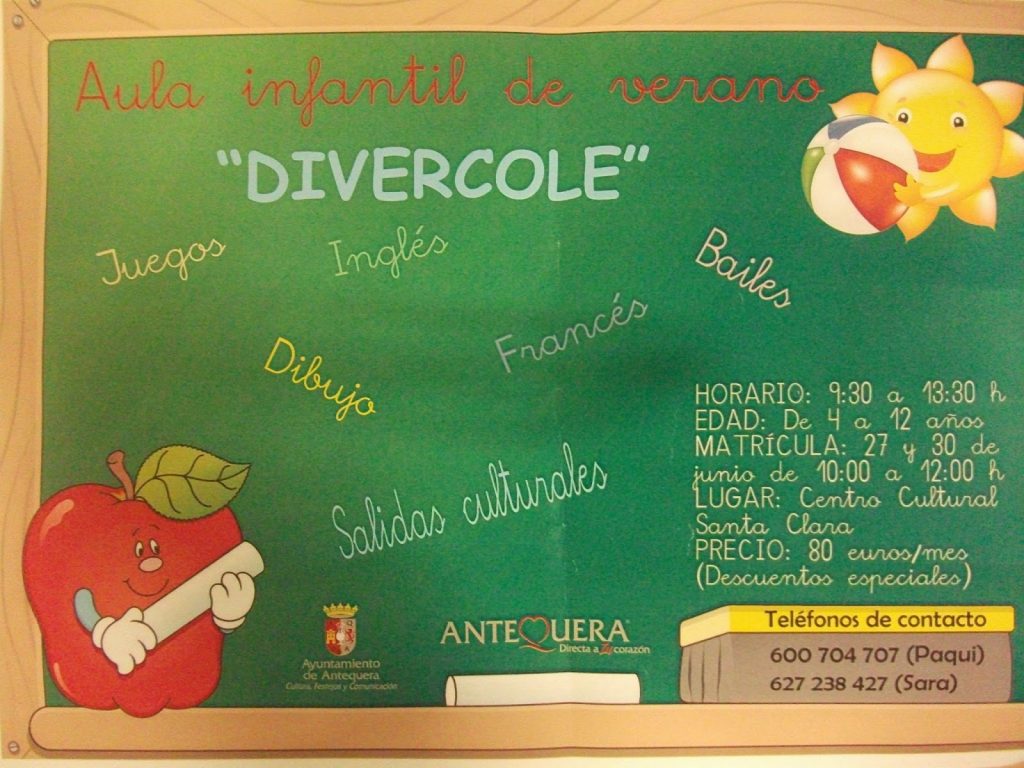 Aula infantil de verano
"DIVERCOLE"
Juegos
Inglés
Bailes
Francés
Dibujo
Salidas culturales
HORARIO: 9:30 a 13:30 h
EDAD: De 4 a 12 años
MATRÍCULA: 27 y 30 de
junio de 10:00 a 12:00 h
LUGAR: Centro Cultural
Santa Clara
PRECIO: 80 euros/mes
(Descuentos especiales)
Ayuntamiento
de Antequera
Cultura, Festejos y Comunicación
ANTEQUERA
Directa a Tu corazón
Teléfonos de contacto
600 704 707 (Paqui)
627 238 427 (Sara)